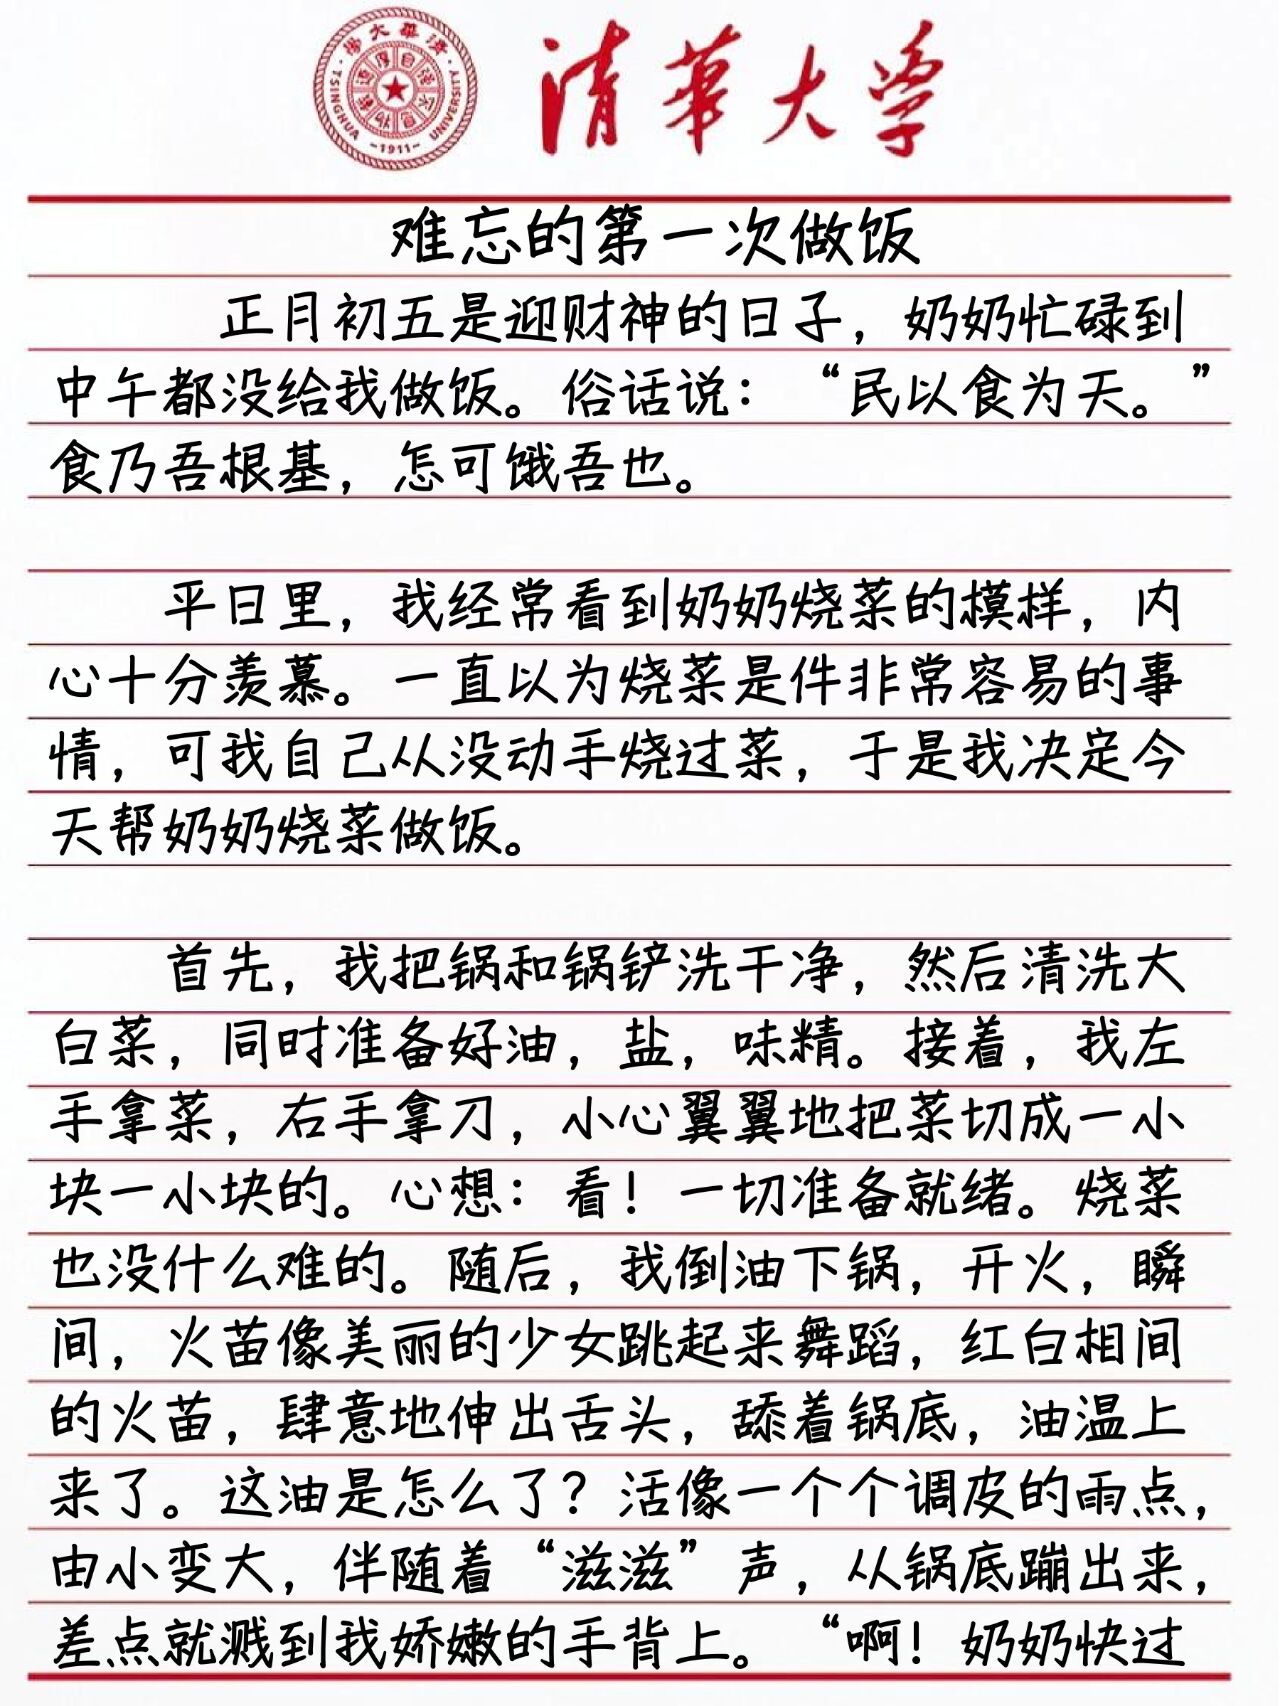 清華大学
TSINGHUA UNIVERSITY
-1911-
难忘的第一次做饭
正月初五是迎财神的日子，奶奶忙碌到
中午都没给我做饭。俗话说：“民以食为天。”
食乃吾根基，怎可饿吾也。
平日里，我经常看到奶奶烧菜的模样，内
心十分羡慕。一直以为烧菜是件非常容易的事
情，可我自己从没动手烧过菜，于是我决定今
天帮奶奶烧菜做饭。
首先，我把锅和锅铲洗干净，然后清洗大
白菜，同时准备好油，盐，味精。接着，我左
手拿菜，右手拿刀，小心翼翼地把菜切成一小
块一小块的。心想：看！一切准备就绪。烧菜
也没什么难的。随后，我倒油下锅，开火，瞬
间，火苗像美丽的少女跳起来舞蹈，红白相间
的火苗，肆意地伸出舌头，舔着锅底，油温上
来了。这油是怎么了？活像一个个调皮的雨点，
由小变大，伴随着“滋滋”声，从锅底蹦出来，
差点就溅到我娇嫩的手背上。“啊！奶奶快过